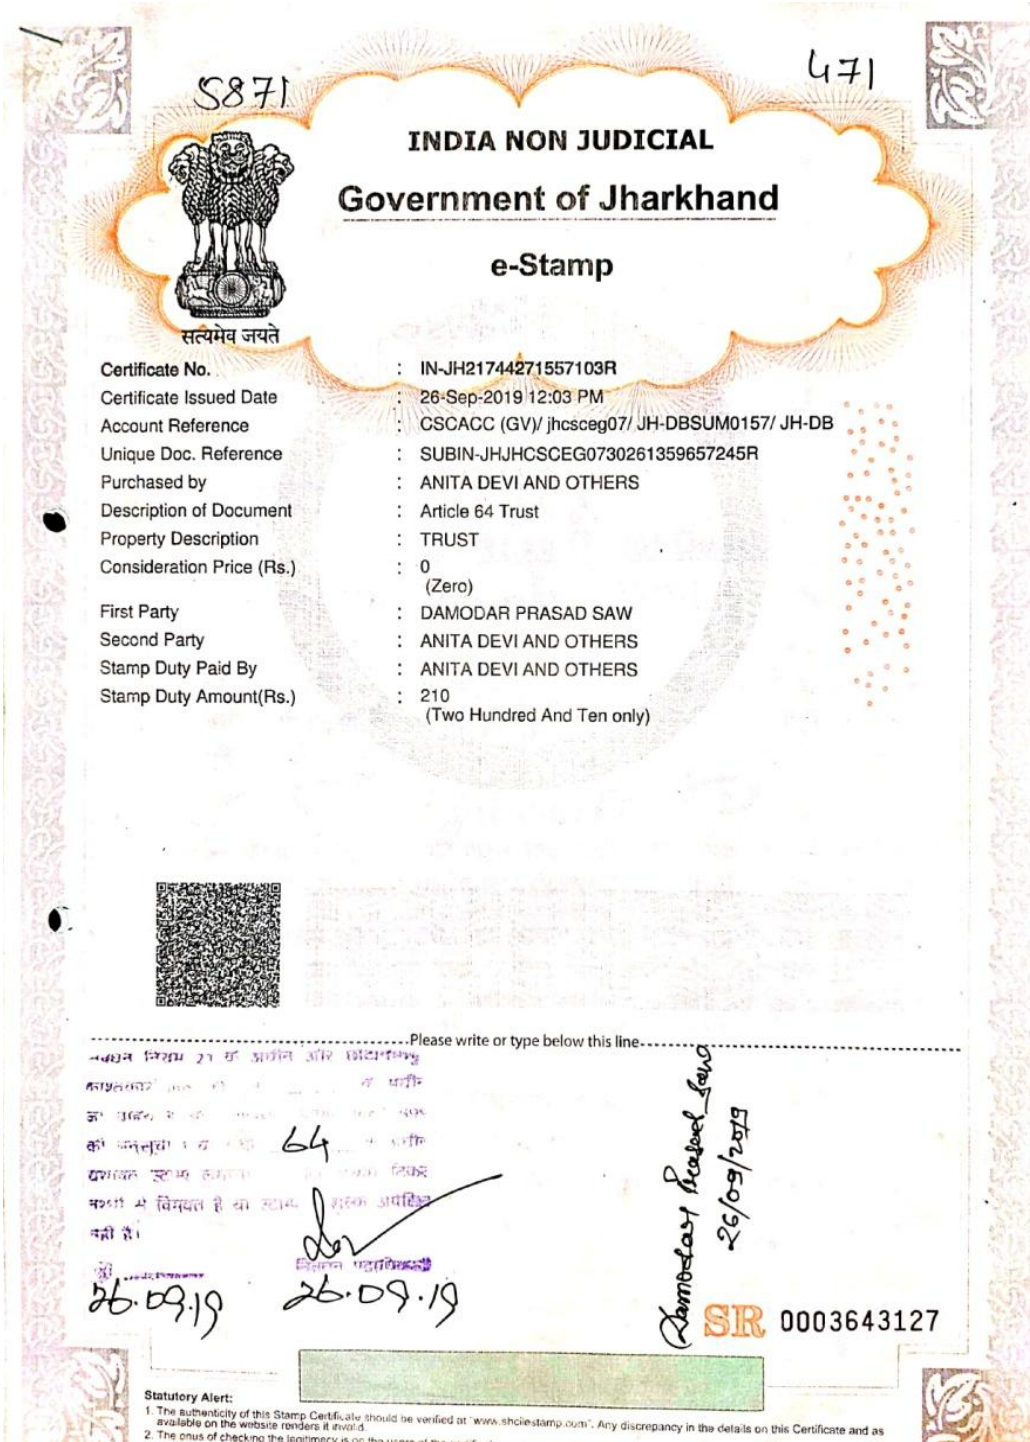 5871
471
INDIA NON JUDICIAL
Government of Jharkhand
e-Stamp
सत्यमेव जयते
Certificate No. : IN-JH21744271557103R
Certificate Issued Date : 26-Sep-2019 12:03 PM
Account Reference : CSCACC (GV)/ jhcsceg07/ JH-DBSUM0157/ JH-DB
Unique Doc. Reference : SUBIN-JHJHCSCEG0730261359657245R
Purchased by : ANITA DEVI AND OTHERS
Description of Document : Article 64 Trust
Property Description : TRUST
Consideration Price (Rs.) : 0
(Zero)
First Party : DAMODAR PRASAD SAW
Second Party : ANITA DEVI AND OTHERS
Stamp Duty Paid By : ANITA DEVI AND OTHERS
Stamp Duty Amount(Rs.) : 210
(Two Hundred And Ten only)
Please write or type below this line
नियम 21 के अधीन और
की अनुसूची 1 64
नही है।
26.09.19
26.09.19
Damodar Prasad Saw
26/09/2019
SR 0003643127
Statutory Alert:
1. The authenticity of this Stamp Certificate should be verified at "www.shcilestamp.com". Any discrepancy in the details on this Certificate and as
available on the website renders it invalid.
2. The onus of checking the legitimacy is on the users of the